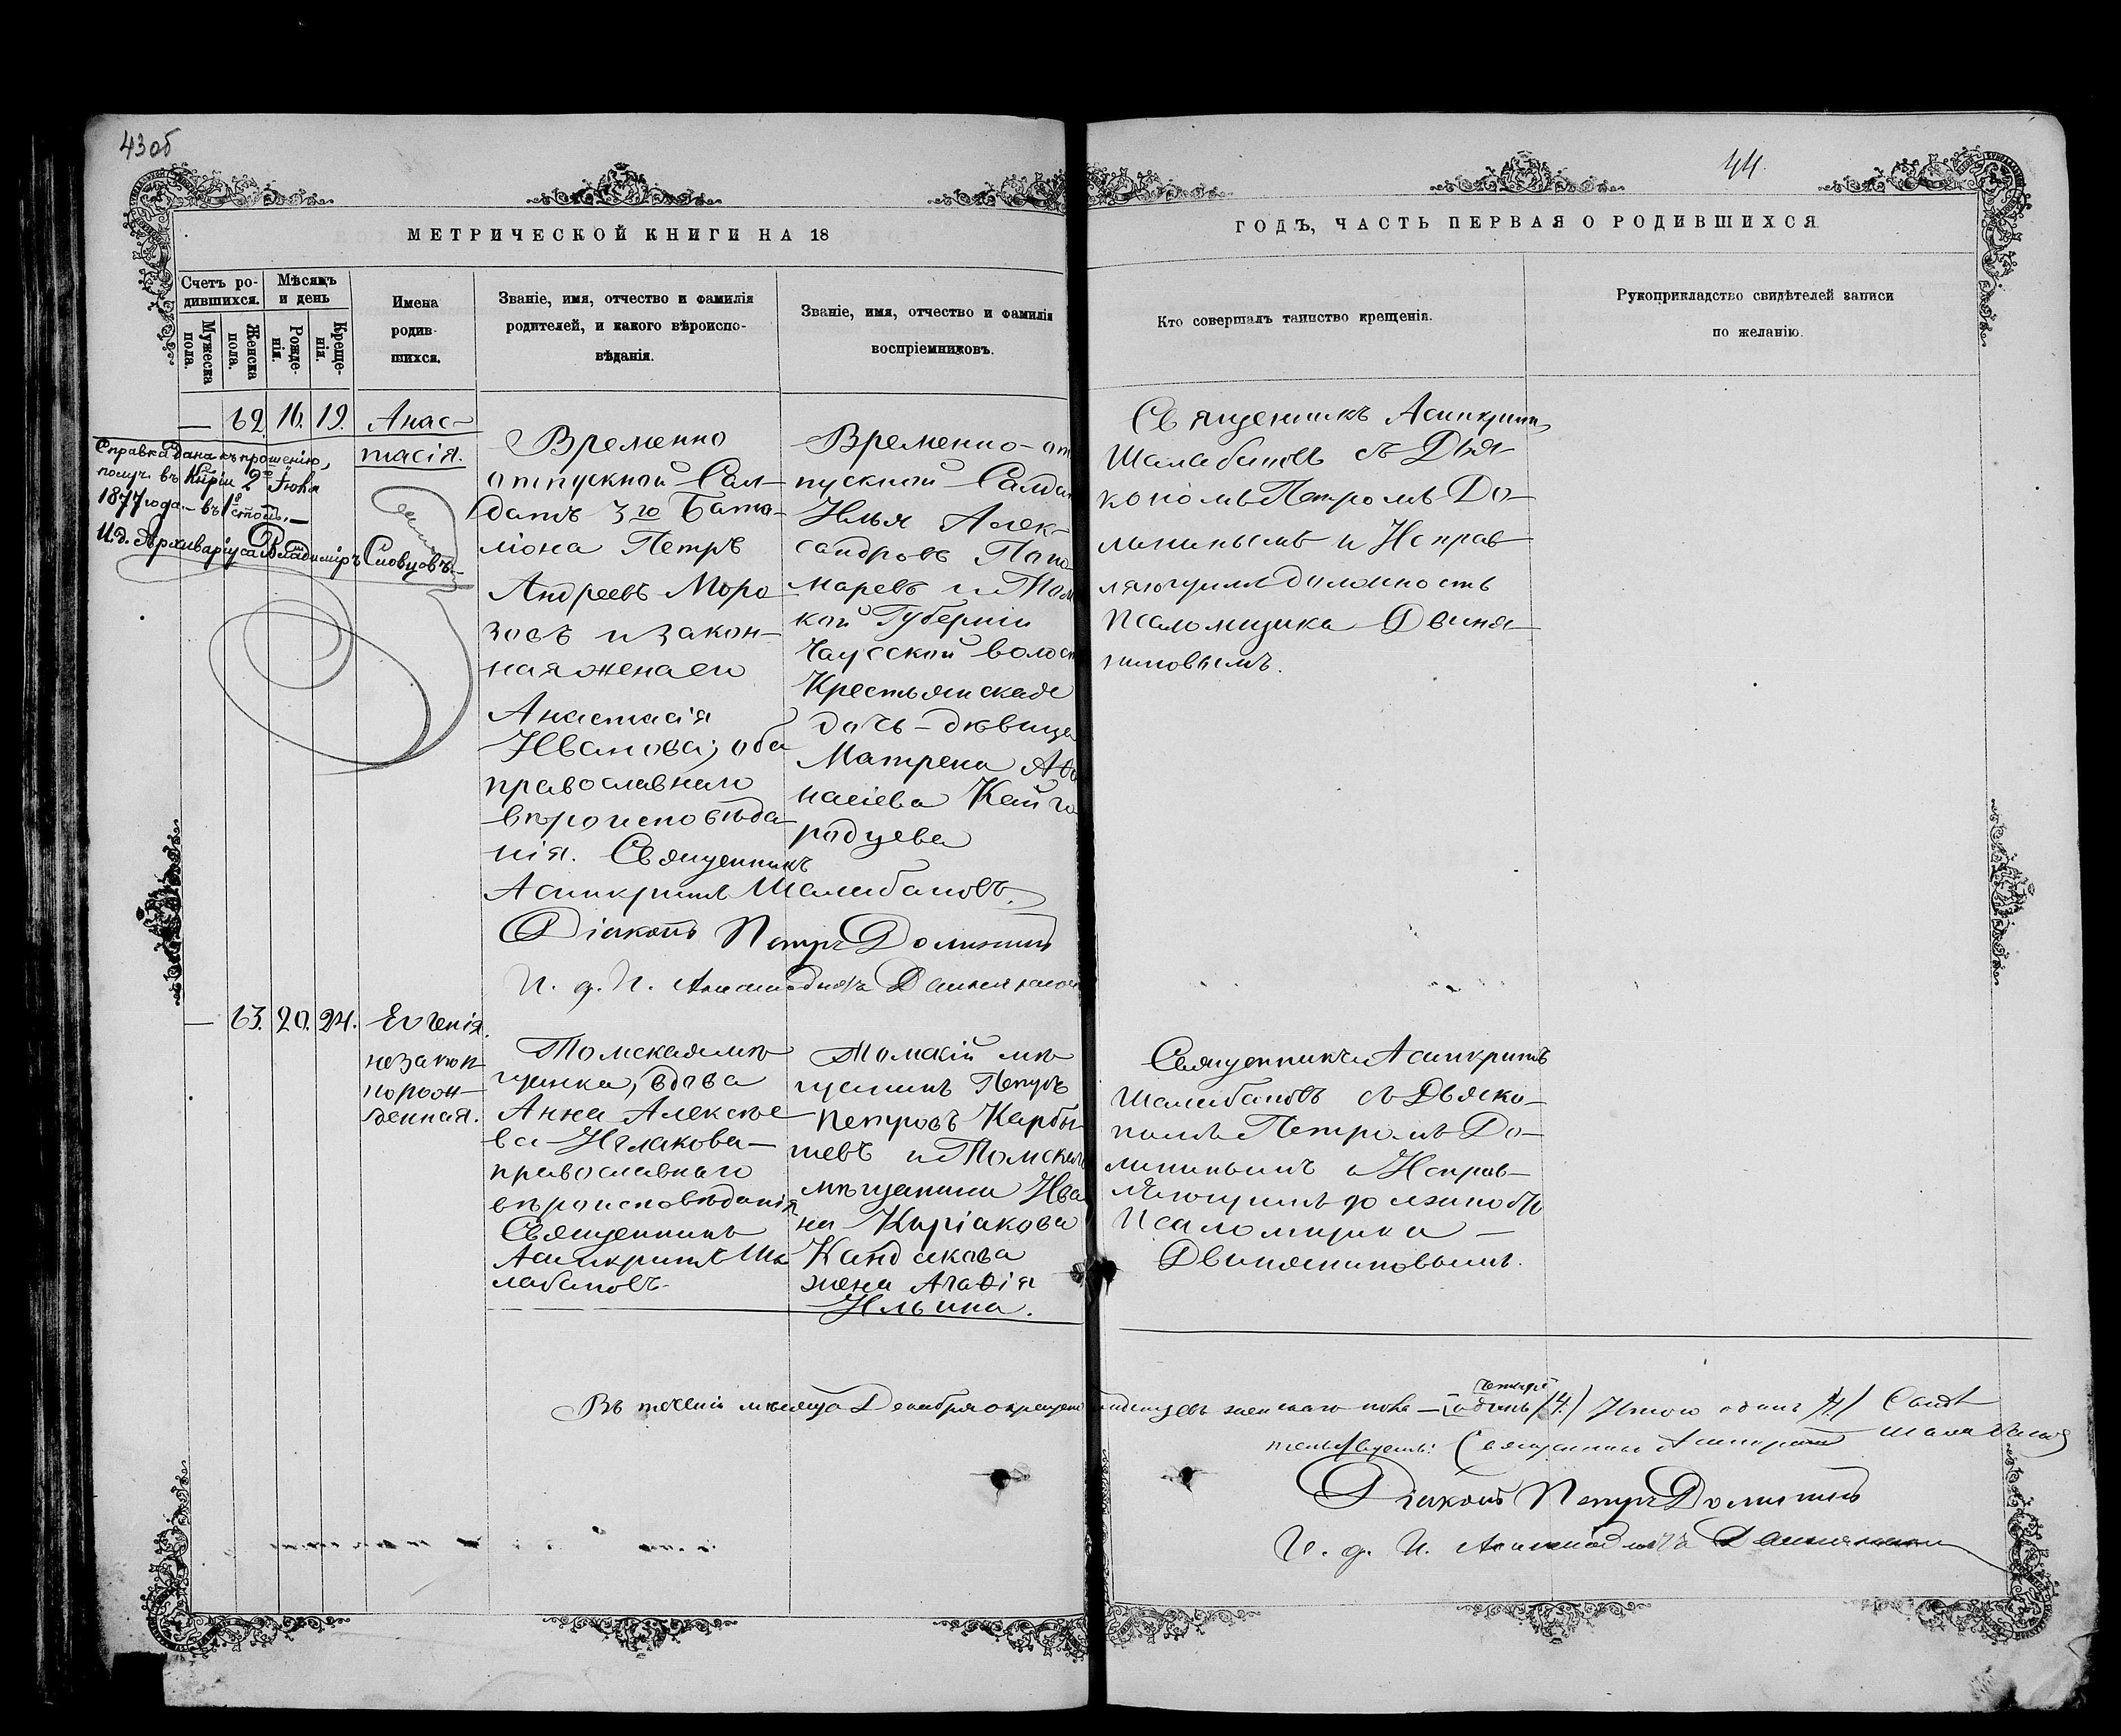 43об
44.
МЕТРИЧЕСКОЙ КНИГИ НА 18
ГОДЪ, ЧАСТЬ ПЕРВАЯ О РОДИВШИХСЯ
Счетъ ро-
дившихся.
Мужеска
пола.
Женска
пола.
Мѣсяцъ
и день
Рожде-
нія.
Креще-
нія.
Имена
родив-
шихся.
Званіе, имя, отчество и фамилія
родителей, и какого вѣроиспо-
вѣданія.
Званіе, имя, отчество и фамилія
воспріемниковъ.
Кто совершалъ таинство крещенія.
Рукоприкладство свидѣтелей записи
по желанію.
— 62. 16. 19. Анас-
тасія.
Справка дана къ прошенію,
получ. въ 2го Іюня
1877 года. — въ 1й столъ. —
И. д. Архиваріуса Владиміръ Словцовъ
Временно
отпускной Сол-
датъ 3го Бата-
ліона Петръ
Андреевъ Моро
зовъ и закон-
ная жена его
Анастасія
Иванова; оба
православнаго
вѣроисповѣда-
нія. Священникъ
Асинкритъ Шалабановъ.
Діаконъ Петръ Домининъ
И. д. П.
Временно-от
пускной Салда
Илья Алек-
сандровъ Поно
маревъ и Том
кой Губерніи
Чаусской волос
Крестьянская
дочь-дѣвица
Матрена Аѳа
насіева Кайго
родцева
Священникъ Асинкритъ
Шалабановъ съ Дья-
кономъ Петромъ До-
мининымъ и Исправ-
ляющимъ должность
Псаломщика Двиня-
ниновымъ.
— 63. 20. 24. Евгенія.
незакон-
норож-
денная.
Томская мѣ-
щанка, вдова
Анна Алексѣе-
ва Иглакова —
православнаго
вѣроисповѣданія
Священникъ
Асинкритъ Ша
лабановъ.
Томскій мѣ-
щанинъ Петръ
Петровъ Карбы-
шевъ и Томскаго
мѣщанина Ива
на Киріакова
Кандакова
жена Агаѳія
Ильина.
Священникъ Асинкритъ
Шалабановъ съ Дьяко-
номъ Петромъ До-
мининымъ и Исправ-
ляющимъ должность
Псаломщика —
Двиняниновымъ.
Въ теченіи мѣсяца Декабря окрещено младенцевъ женскаго пола — четыре [одинъ] /4./ Итого одинъ /4/ Свидѣ
тельствуютъ: Священникъ Асинкритъ Шалабановъ
Діаконъ Петръ Домининъ
И. д. П.